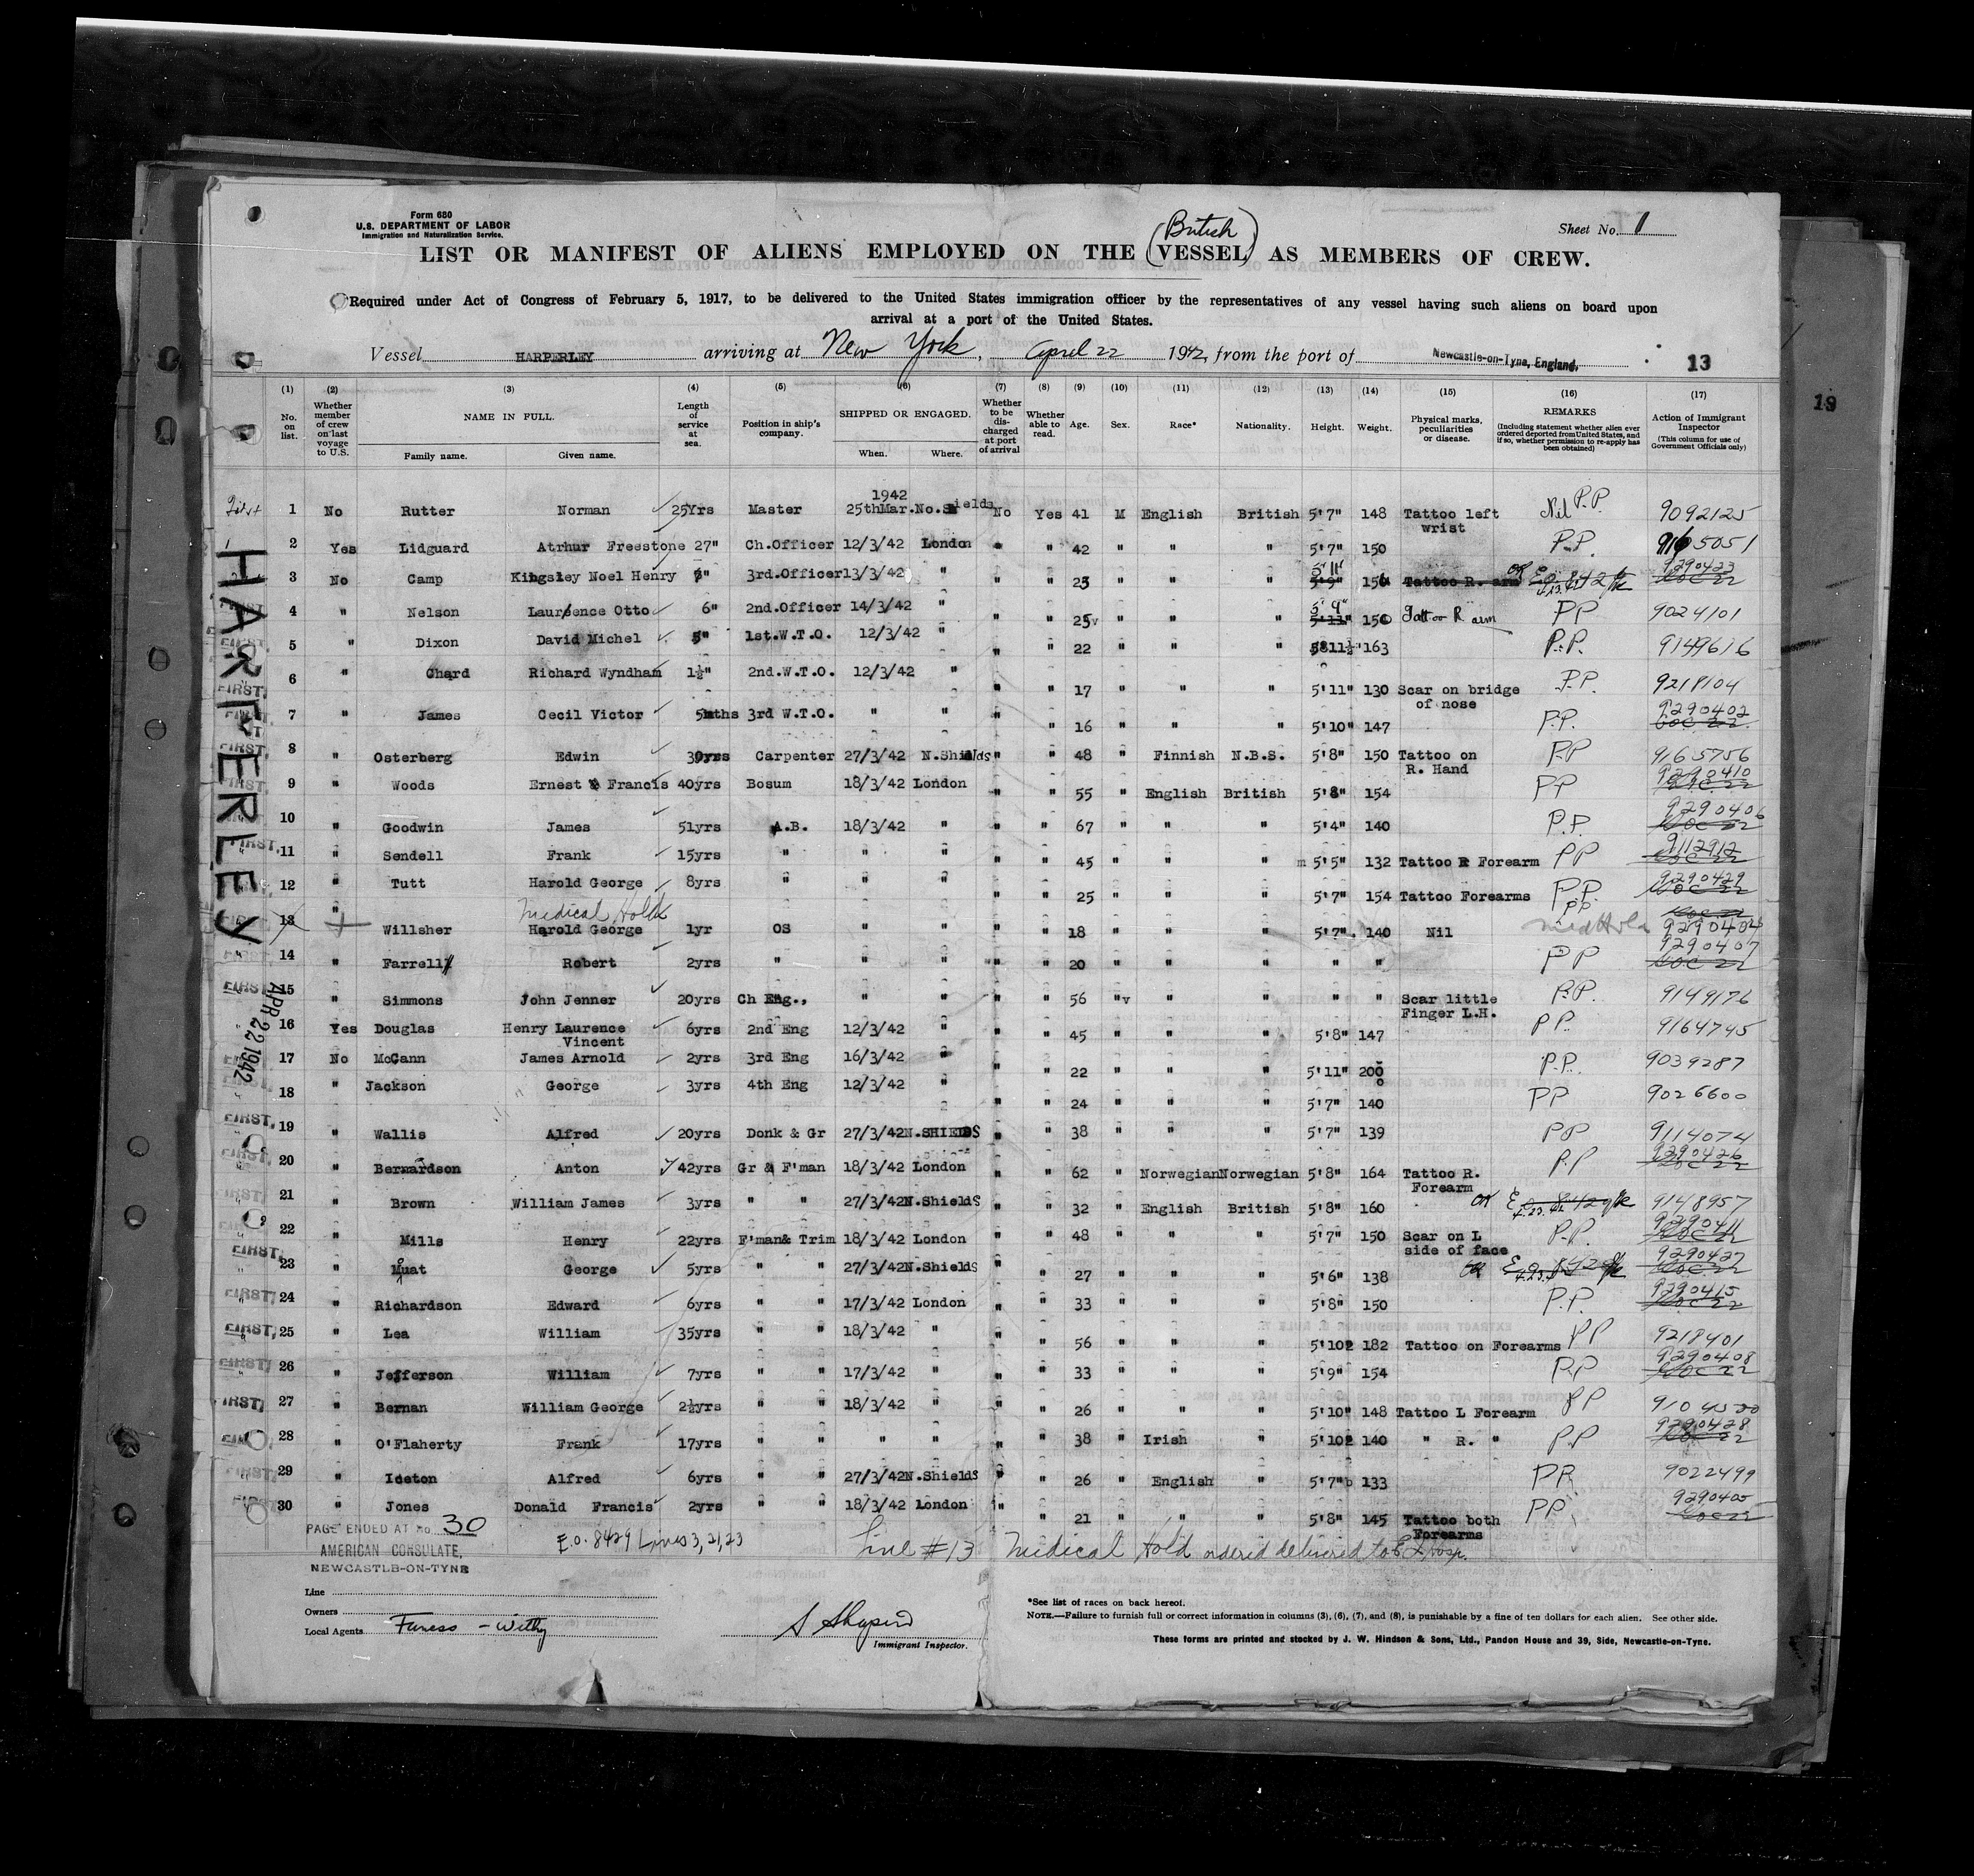 Form 680
U.S. DEPARTMENT OF LABOR
Immigration and Naturalization Service.
Sheet No. 1
(British)
LIST OR MANIFEST OF ALIENS EMPLOYED ON THE (VESSEL) AS MEMBERS OF CREW.
Required under Act of Congress of February 5, 1917, to be delivered to the United States immigration officer by the representatives of any vessel having such aliens on board upon
arrival at a port of the United States.
Vessel HARPERLEY arriving at New York, April 22 1942, from the port of Newcastle-on-Tyne, England. 13
19
(1) No. on list. (2) Whether member of crew on last voyage to U.S. (3) NAME IN FULL. Family name. Given name. (4) Length of service at sea. (5) Position in ship's company. (6) SHIPPED OR ENGAGED. When. Where. (7) Whether to be discharged at port of arrival (8) Whether able to read. (9) Age. (10) Sex. (11) Race* (12) Nationality. (13) Height. (14) Weight. (15) Physical marks, peculiarities or disease. (16) REMARKS (Including statement whether alien ever ordered deported from United States, and if so, whether permission to re-apply has been obtained) (17) Action of Immigrant Inspector (This column for use of Government Officials only)
HARPERLEY
APR 22 1942
1942
1 No Rutter Norman 25Yrs Master 25thMar. No. Shields No Yes 41 M English British 5'7" 148 Tattoo left wrist Nil P.P. 9092125
2 Yes Lidguard Atrhur Freestone 27" Ch.Officer 12/3/42 London " " 42 " " " 5'7" 150 P.P. 9165051
3 No Camp Kingsley Noel Henry " 3rd.Officer 13/3/42 " " " 25 " " " 5'11" 5'9" Tattoo R. arm OK 9290423
4 " Nelson Laurence Otto 6" 2nd.Officer 14/3/42 " " " 25 " " " 5'9" 5'11" 150 Tattoo R arm PP 9024101
5 " Dixon David Michel 5" 1st.W.T.O. 12/3/42 " " " 22 " " " 163 P.P. 9149616
6 " Chard Richard Wyndham 1½" 2nd.W.T.O. 12/3/42 " " " 17 " " " 5'11" 130 Scar on bridge of nose P.P. 9218104
7 " James Cecil Victor 5mths 3rd W.T.O. " " " " 16 " " " 5'10" 147 P.P. 9290402
8 " Osterberg Edwin 30yrs Carpenter 27/3/42 N.Shields " " 48 " Finnish N.B.S. 5'8" 150 Tattoo on R. Hand P.P 9165756
9 " Woods Ernest Francis 40yrs Bosum 18/3/42 London " " 55 " English British 5'8" 154 PP 9290410
10 " Goodwin James 51yrs A.B. 18/3/42 " " " 67 " " " 5'4" 140 P.P. 9290406
11 " Sendell Frank 15yrs " " " " " 45 " " " 5'5" 132 Tattoo R Forearm PP 9112912
12 " Tutt Harold George 8yrs " " " " " 25 " " " 5'7" 154 Tattoo Forearms P.P. 9290429
Medical Hold
13 " Willsher Harold George 1yr OS " " " " 18 " " " 5'7" 140 Nil PP Med Hold 9290404
14 " Farrell Robert 2yrs " " " " " 20 " " " " " PP 9290407
15 " Simmons John Jenner 20yrs Ch Eng., " " " " 56 " " " " " Scar little Finger L.H. P.P. 9149176
16 Yes Douglas Henry Laurence Vincent 6yrs 2nd Eng 12/3/42 " " " 45 " " " 5'8" 147 PP. 9164745
17 No McCann James Arnold 2yrs 3rd Eng 16/3/42 " " " 22 " " " 5'11" 200 P.P. 9039287
18 " Jackson George 3yrs 4th Eng 12/3/42 " " " 24 " " " 5'7" 140 PP 9026600
19 " Wallis Alfred 20yrs Donk & Gr 27/3/42 N.SHIELDS " " 38 " " " 5'7" 139 PP 9114074
20 " Bernardson Anton 42yrs Gr & F'man 18/3/42 London " " 62 " Norwegian Norwegian 5'8" 164 Tattoo R. Forearm P.P 9290426
21 " Brown William James 3yrs " " 27/3/42 N.Shields " " 32 " English British 5'8" 160 OK 9148957
22 " Mills Henry 22yrs F'man& Trim 18/3/42 London " " 48 " " " 5'7" 150 Scar on L side of face P.P. 9290411
23 " Mouat George 5yrs " " 27/3/42 N.Shields " " 27 " " " 5'6" 138 OK 9290427
24 " Richardson Edward 6yrs " " 17/3/42 London " " 33 " " " 5'8" 150 P.P. 9290415
25 " Lea William 35yrs " " 18/3/42 " " " 56 " " " 5'10 182 Tattoo on Forearms PP 9218401
26 " Jefferson William 7yrs " " 17/3/42 " " " 33 " " " 5'9" 154 PP 9290408
27 " Bernan William George 2½yrs " " 18/3/42 " " " 26 " " " 5'10" 148 Tattoo L Forearm PP
28 " O'Flaherty Frank 17yrs " " " " " " 38 " Irish " 5'10 140 " R. " PP 9290428
29 " Iceton Alfred 6yrs " " 27/3/42 N.Shields " " 26 " English " 5'7" 133 PP. 9022499
30 " Jones Donald Francis 2yrs " " 18/3/42 London " " 21 " " " 5'8" 145 Tattoo both Forearms PP 9290405
PAGE ENDED AT No. 30
AMERICAN CONSULATE,
NEWCASTLE-ON-TYNE
E.O. 8429 Lines 3, 21, 23
Line #13 Medical Hold ordered delivered to E I Hosp.
Line
Owners
Local Agents Furess - Withy
S Shapiro
Immigrant Inspector.
*See list of races on back hereof.
NOTE.—Failure to furnish full or correct information in columns (3), (6), (7), and (8), is punishable by a fine of ten dollars for each alien. See other side.
These forms are printed and stocked by J. W. Hindson & Sons, Ltd., Pandon House and 39, Side, Newcastle-on-Tyne.